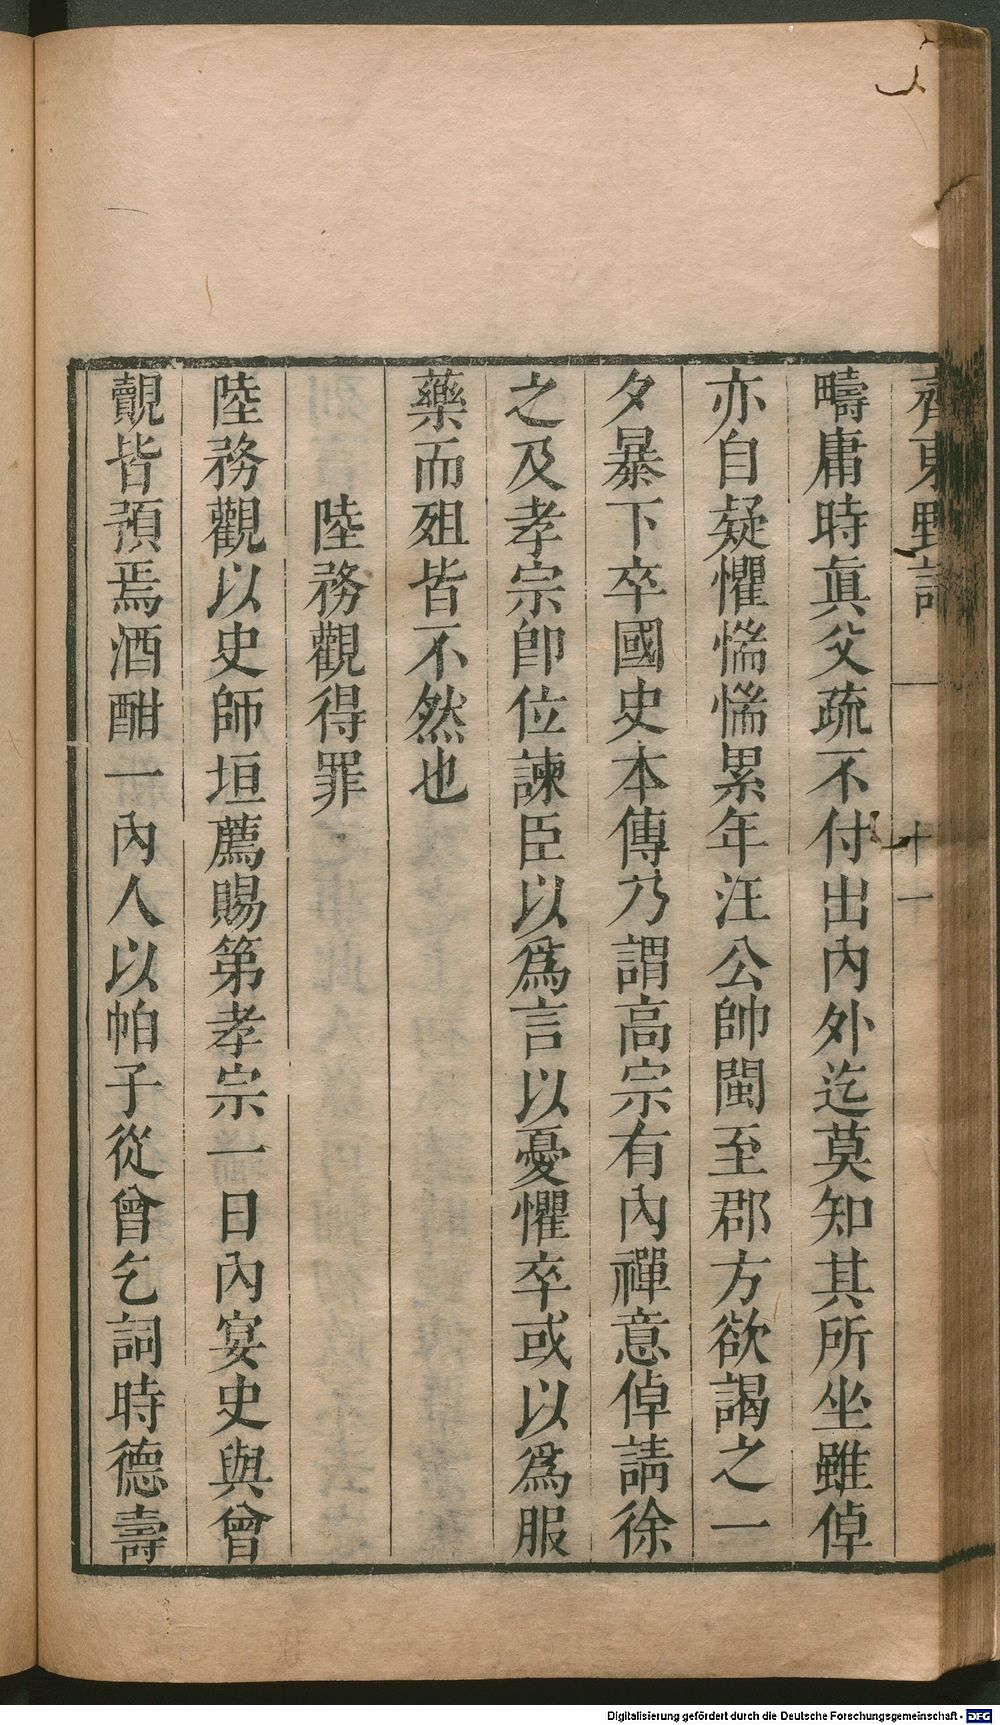 齊東野語 一 十一
疇庸時眞父疏不付出內外迄莫知其所坐雖倬
亦自疑懼惴惴累年汪公帥閩至郡方欲謁之一
夕暴下卒國史本傳乃謂高宗有內禪意倬請徐
之及孝宗卽位諫臣以爲言以憂懼卒或以爲服
藥而殂皆不然也
陸務觀得罪
陸務觀以史師垣薦賜第孝宗一日內宴史與曾
覿皆預焉酒酣一內人以帕子從曾乞詞時德壽
Digitalisierung gefördert durch die Deutsche Forschungsgemeinschaft - DFG